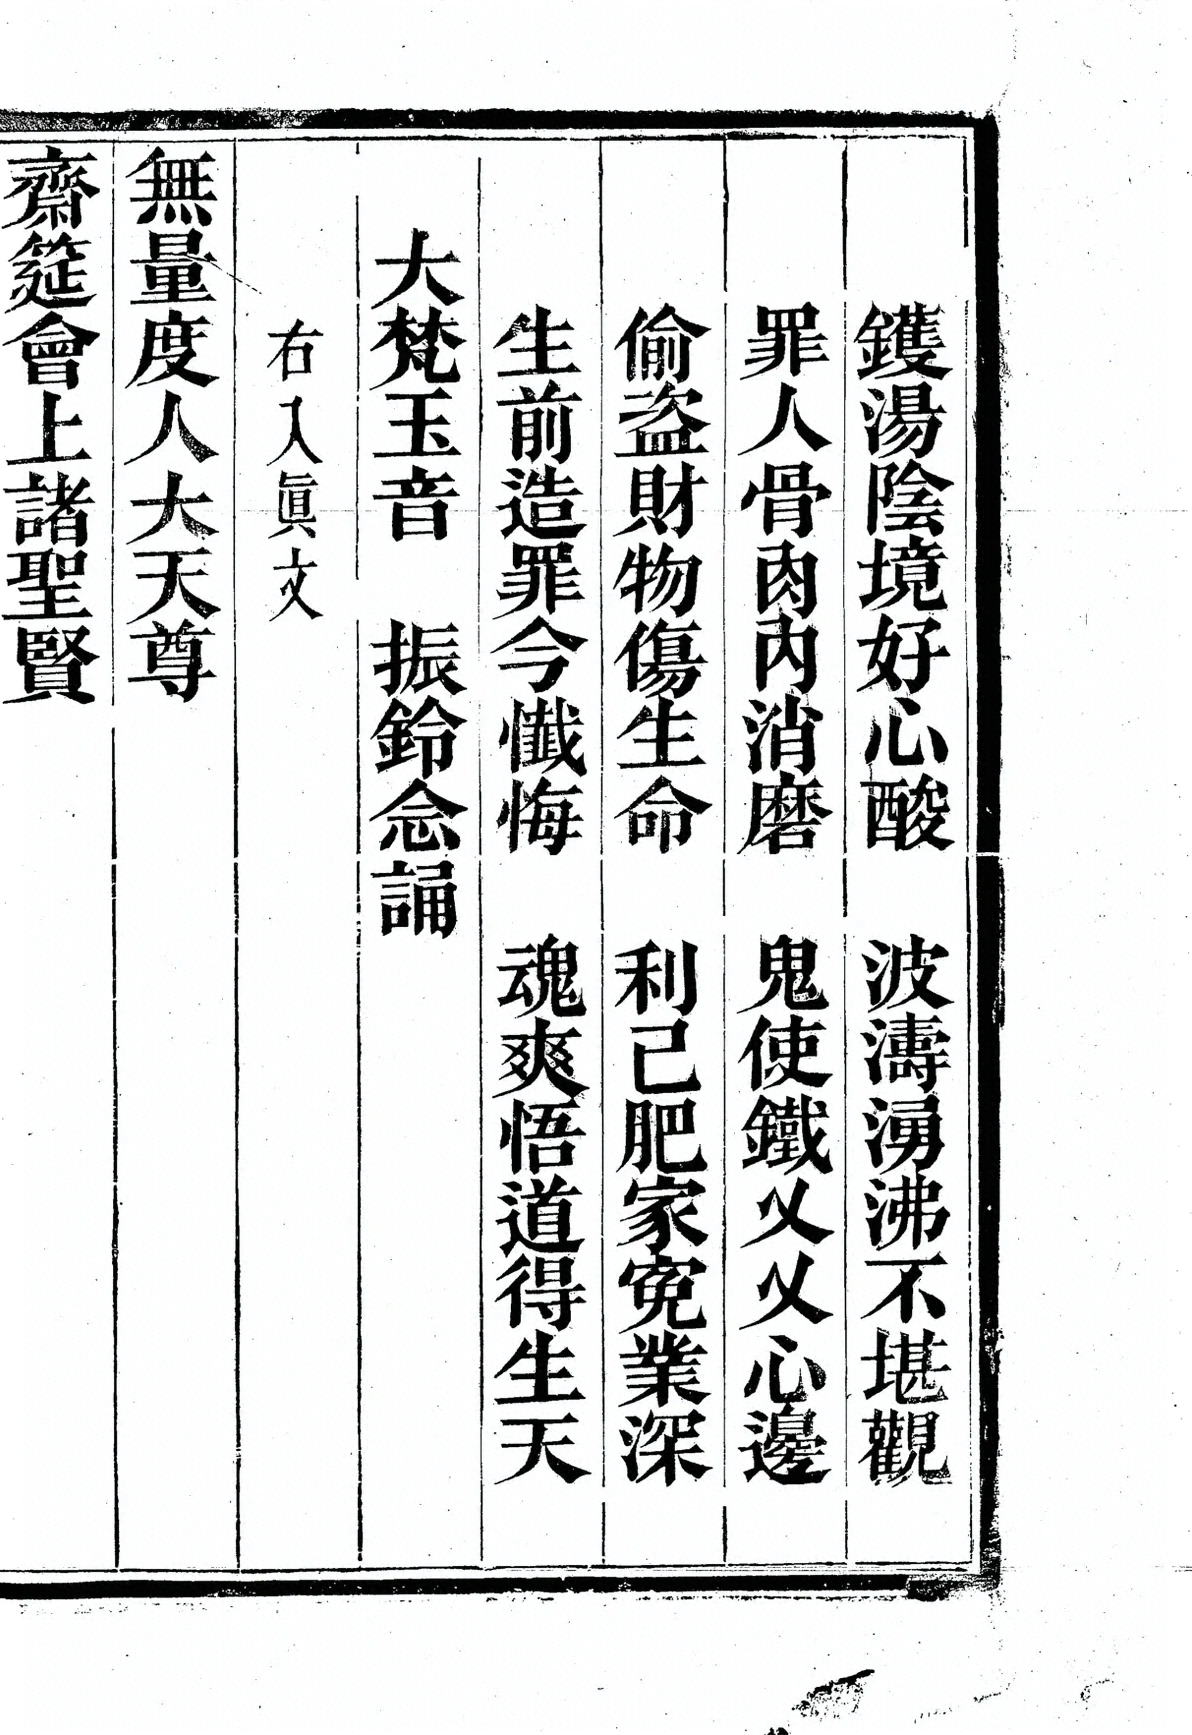 鑊湯陰境好心酸　波濤湧沸不堪觀
罪人骨肉內消磨　鬼使鐵乂乂心邊
偷盜財物傷生命　利己肥家寃業深
生前造罪今懺悔　魂爽悟道得生天
大梵玉音　振鈴念誦
右入眞文
無量度人大天尊
齋筵會上諸聖賢